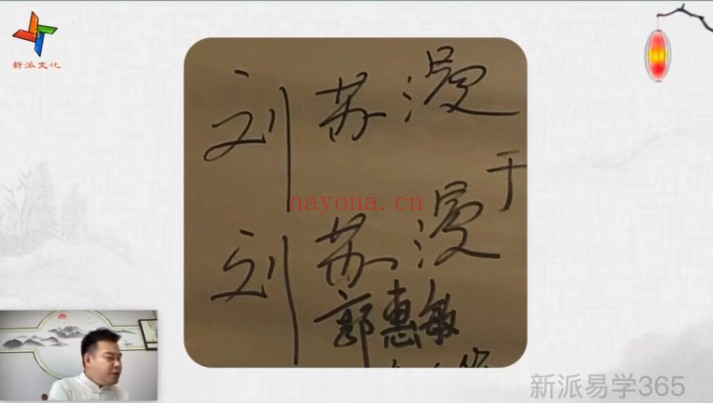 新派文化
刘苏漫
于
nayona.cn
刘苏漫
郭惠敏
新派易学365